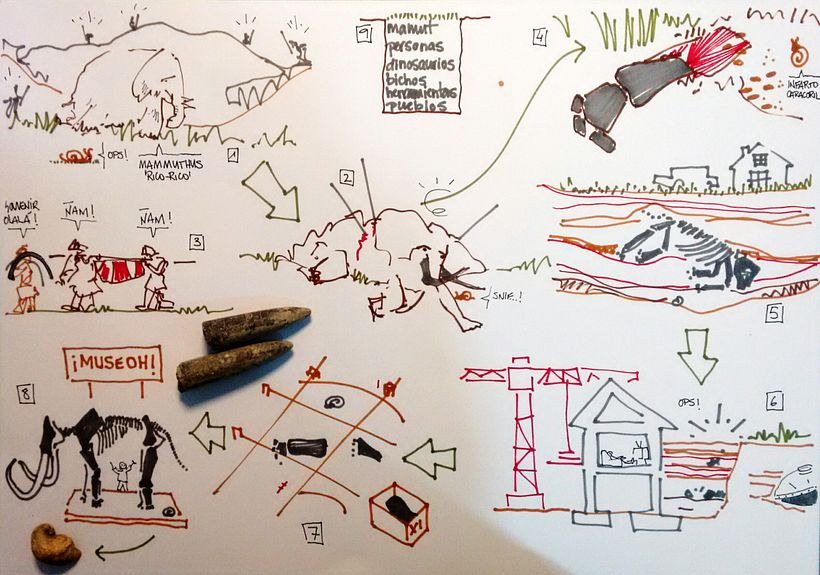 OPS!
MAMMUTHUS
'RICO-RICO'
1
2
SNIF..!
SOUVENIR
OLALÁ!
ÑAM!
ÑAM!
3
4
INFARTO
CARACORIL
5
OPS!
6
7
X!
8
¡MUSEOH!
9
mamut
personas
dinosaurios
bichos
herramientas
pueblos